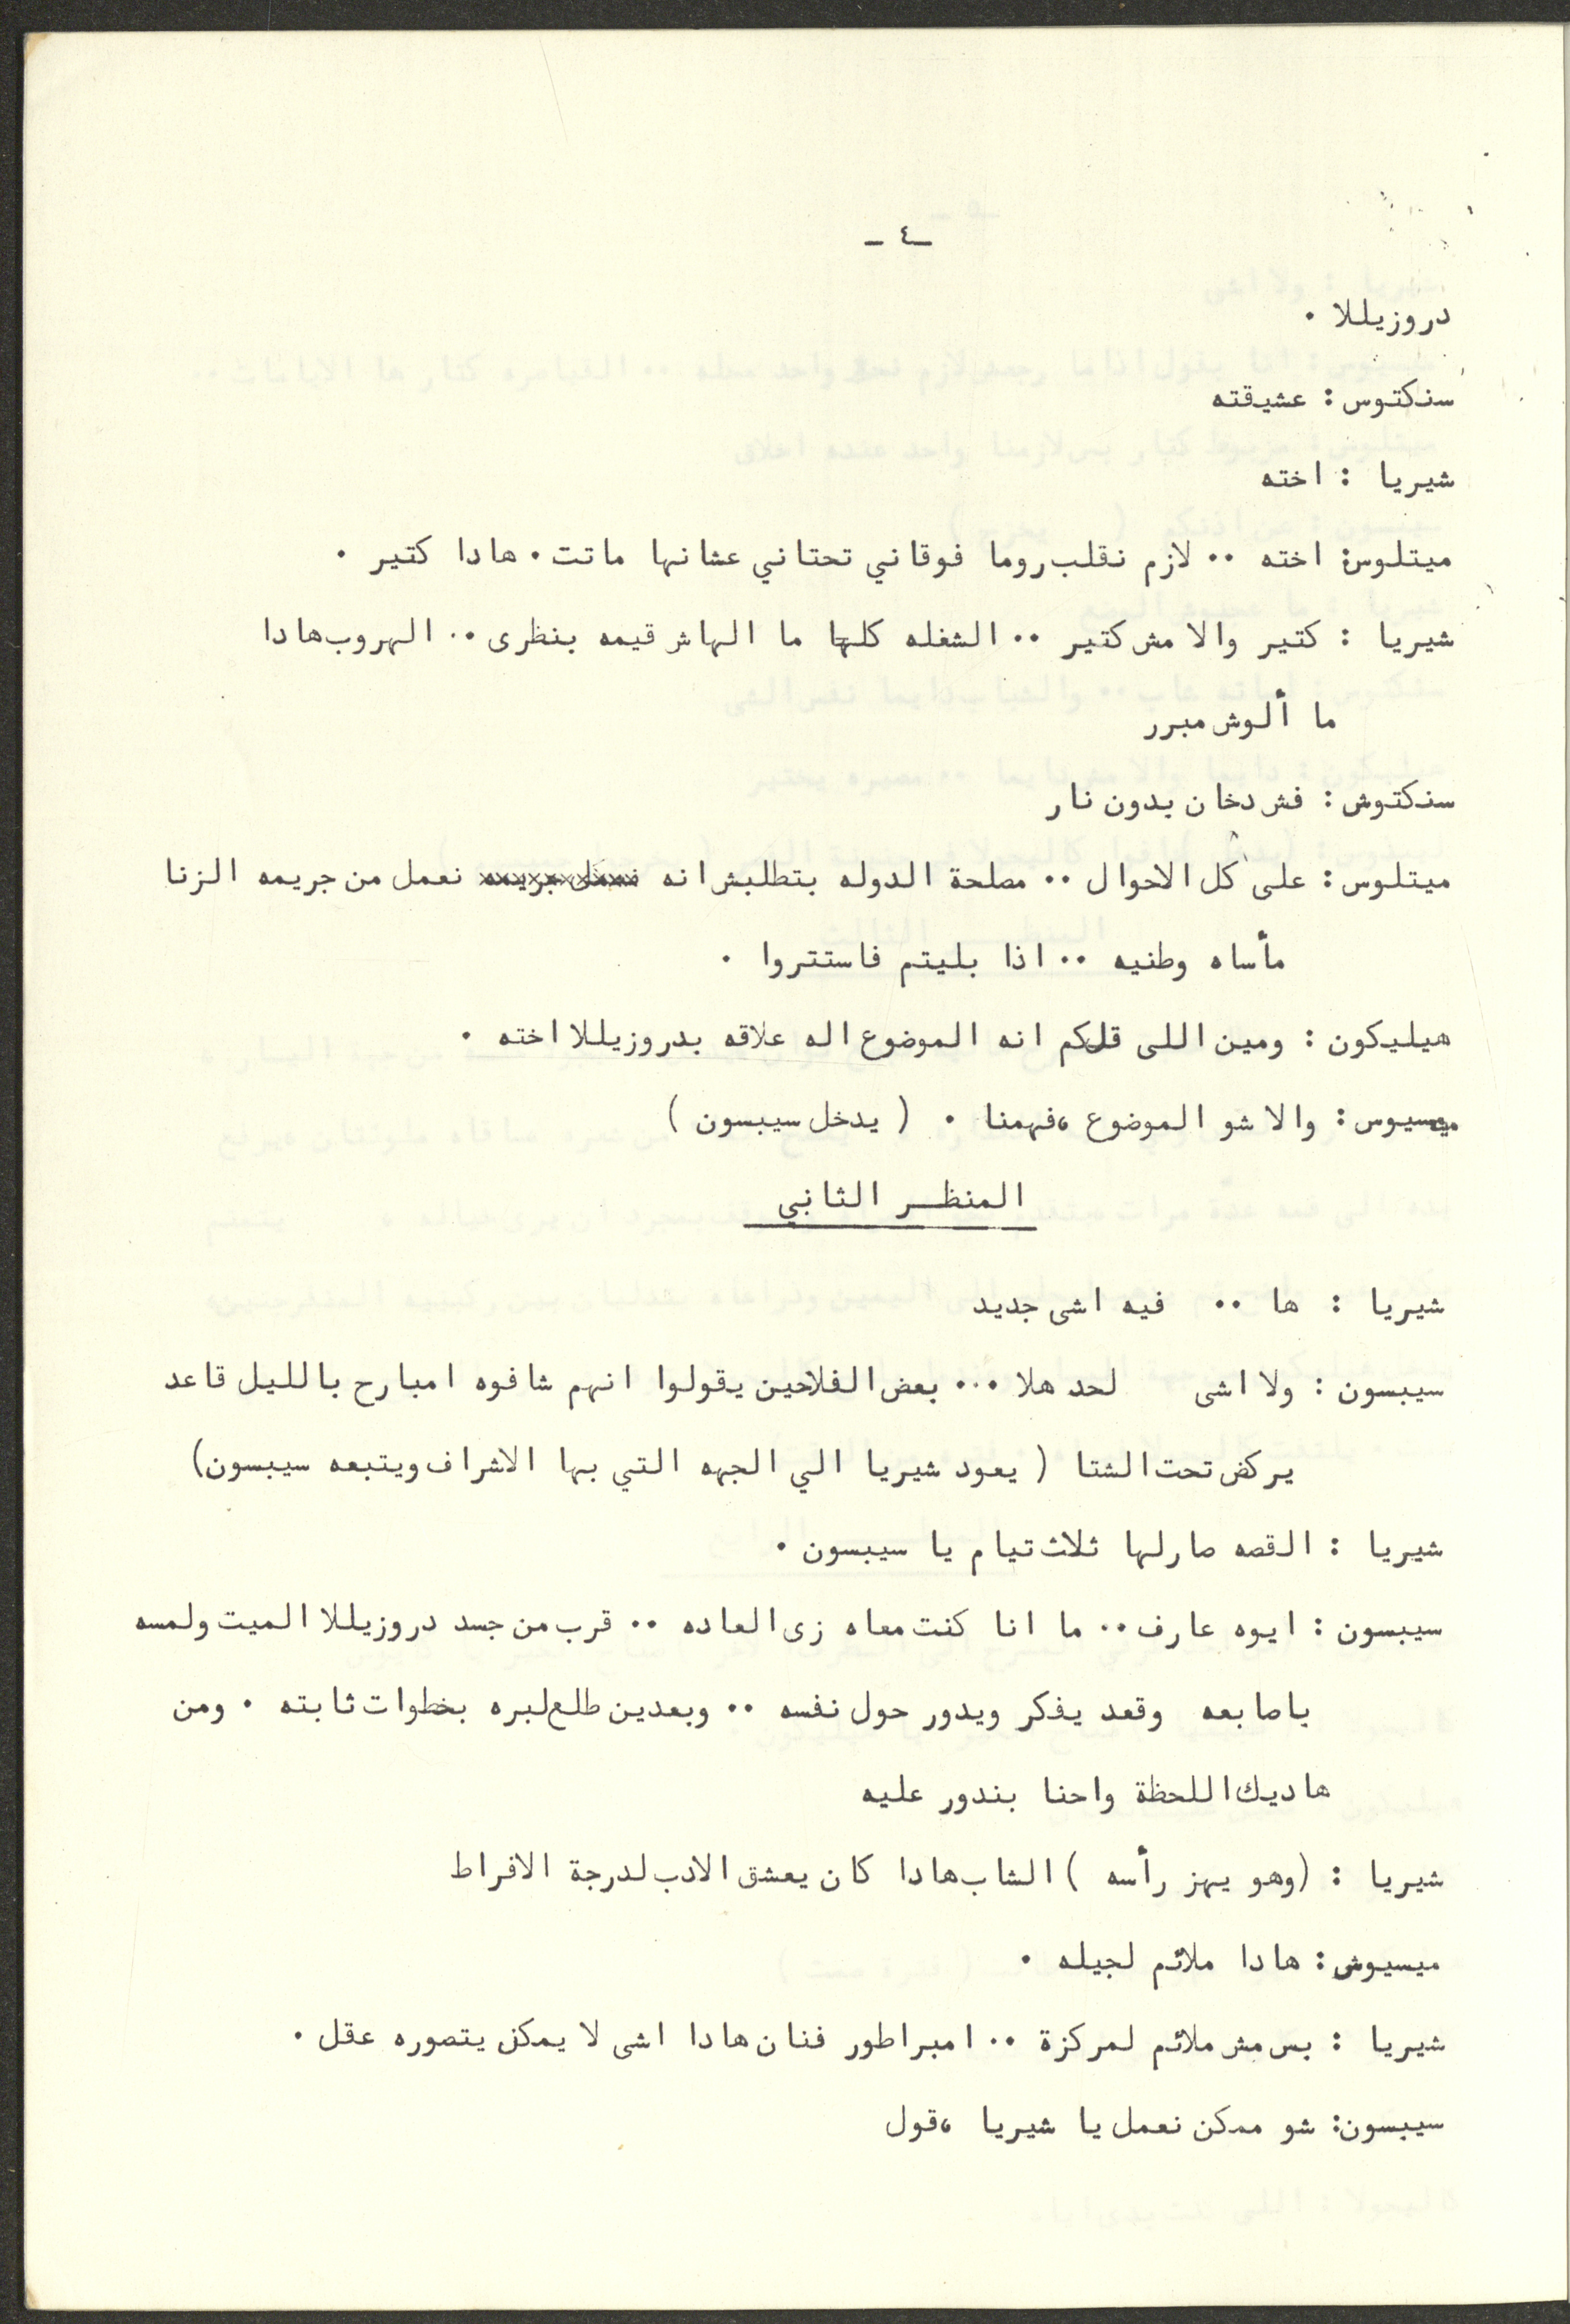 -٤-
دروزيللا .
سنكتوس : عشيقته
شيريا : اخته
ميتلوس: اخته .. لازم نقلب روما فوقاني تحتاني عشانها ماتت . هادا كتير .
شيريا : كتير والا مش كتير .. الشغله كلها ما الهاش قيمه بنظرى .. الهروب هادا
ما ألوش مبرر
سنكتوش : فش دخان بدون نار
ميتلوس : على كل الاحوال .. مصلحة الدوله بتطلبش انه نعمل من جريمه الزنا
مأساه وطنيه .. اذا بليتم فاستتروا .
هيليكون : ومين اللى قلكم انه الموضوع اله علاقه بدروزيللا اخته .
ميسيوس : والا شو الموضوع ،فهمنا . ( يدخل سيبسون )
المنظر الثاني
شيريا : ها .. فيه اشى جديد
سيبسون : ولا اشى لحد هلا ... بعض الفلاحين يقولوا انهم شافوه امبارح بالليل قاعد
يركض تحت الشتا ( يعود شيريا الي الجهه التي بها الاشراف ويتبعه سيبسون)
شيريا : القصه صارلها ثلاث تيام يا سيبسون .
سيبسون : ايوه عارف .. ما انا كنت معاه زى العاده .. قرب من جسد دروزيللا الميت ولمسه
باصابعه وقعد يفكر ويدور حول نفسه .. وبعدين طلع لبره بخطوات ثابته . ومن
هاديك اللحظة واحنا بندور عليه
شيريا : (وهو يهز رأسه ) الشاب هادا كان يعشق الادب لدرجة الافراط
ميسيوش : هادا ملائم لجيله .
شيريا : بس مش ملائم لمركزة .. امبراطور فنان هادا اشى لا يمكن يتصوره عقل .
سيبسون: شو ممكن نعمل يا شيريا ،قول